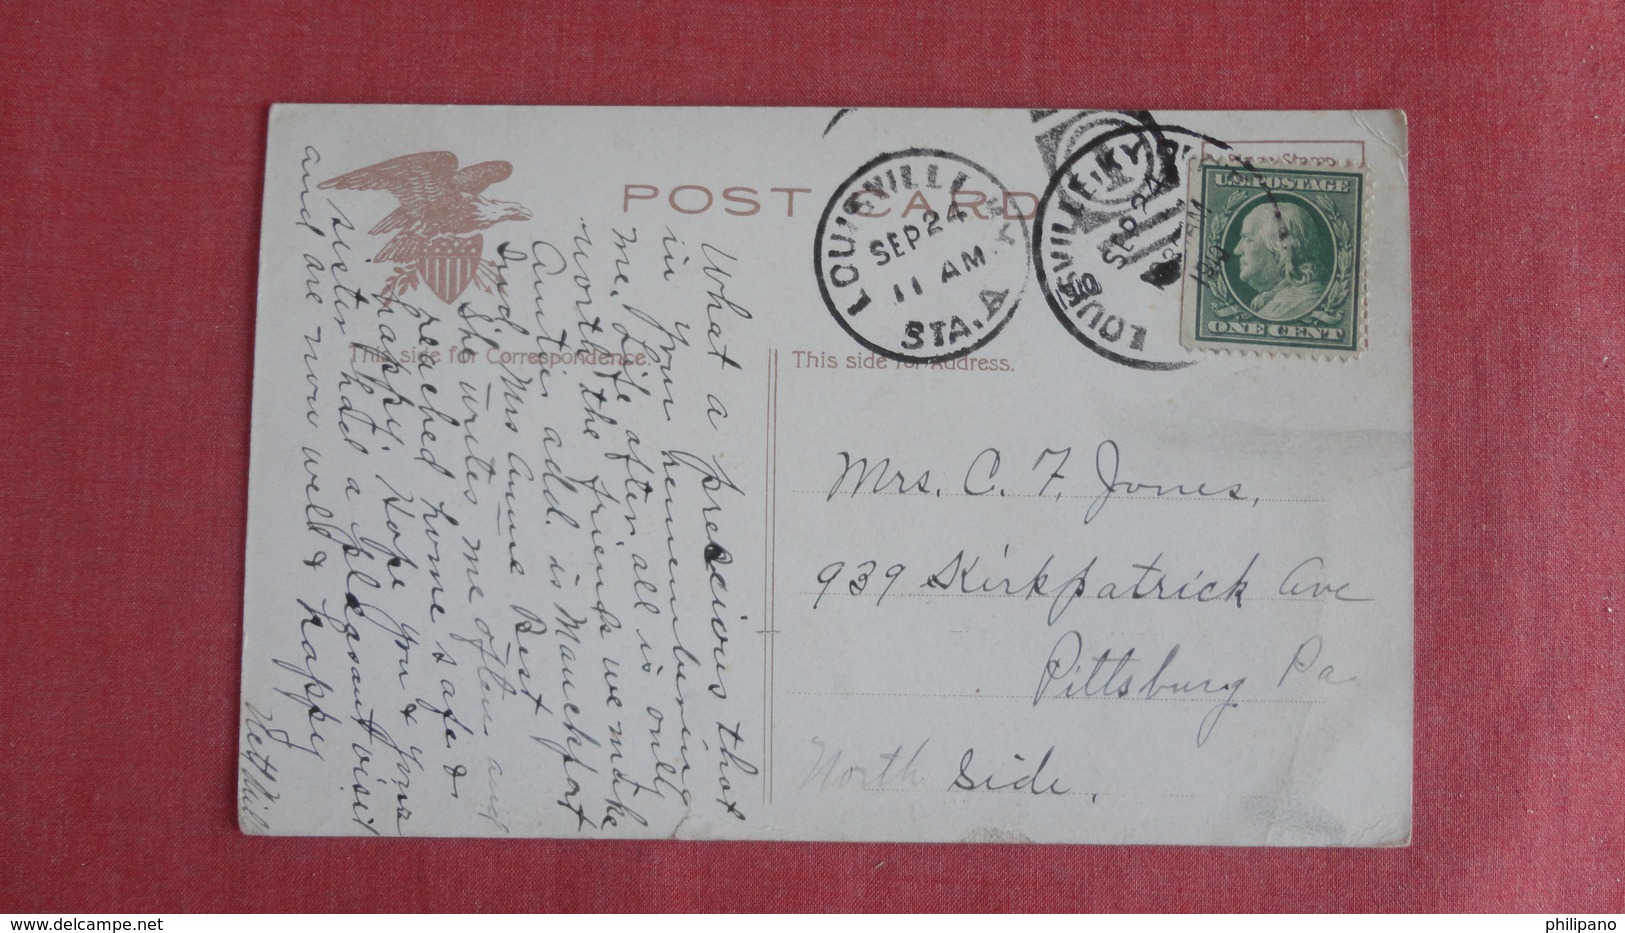 POST CARD
This side for Correspondence.
This side for Address.
LOUISVILLE KY.
SEP 24
11 AM
STA. A
LOUISVILLE, KY.
SEP 24
AM
U.S. POSTAGE
ONE CENT
Mrs. C. F. Jones,
939 Kirkpatrick Ave
Pittsburg Pa
North Side.
What a precious that
in your remembering
me. Life after all is only
worth the friends we make
Auntie add. is Mauckport
Ind Mrs Anna Best
She writes me often and
reached home safe &
happy. Hope you & your
sister had a pleasant visit
and are now well & happy
philipano